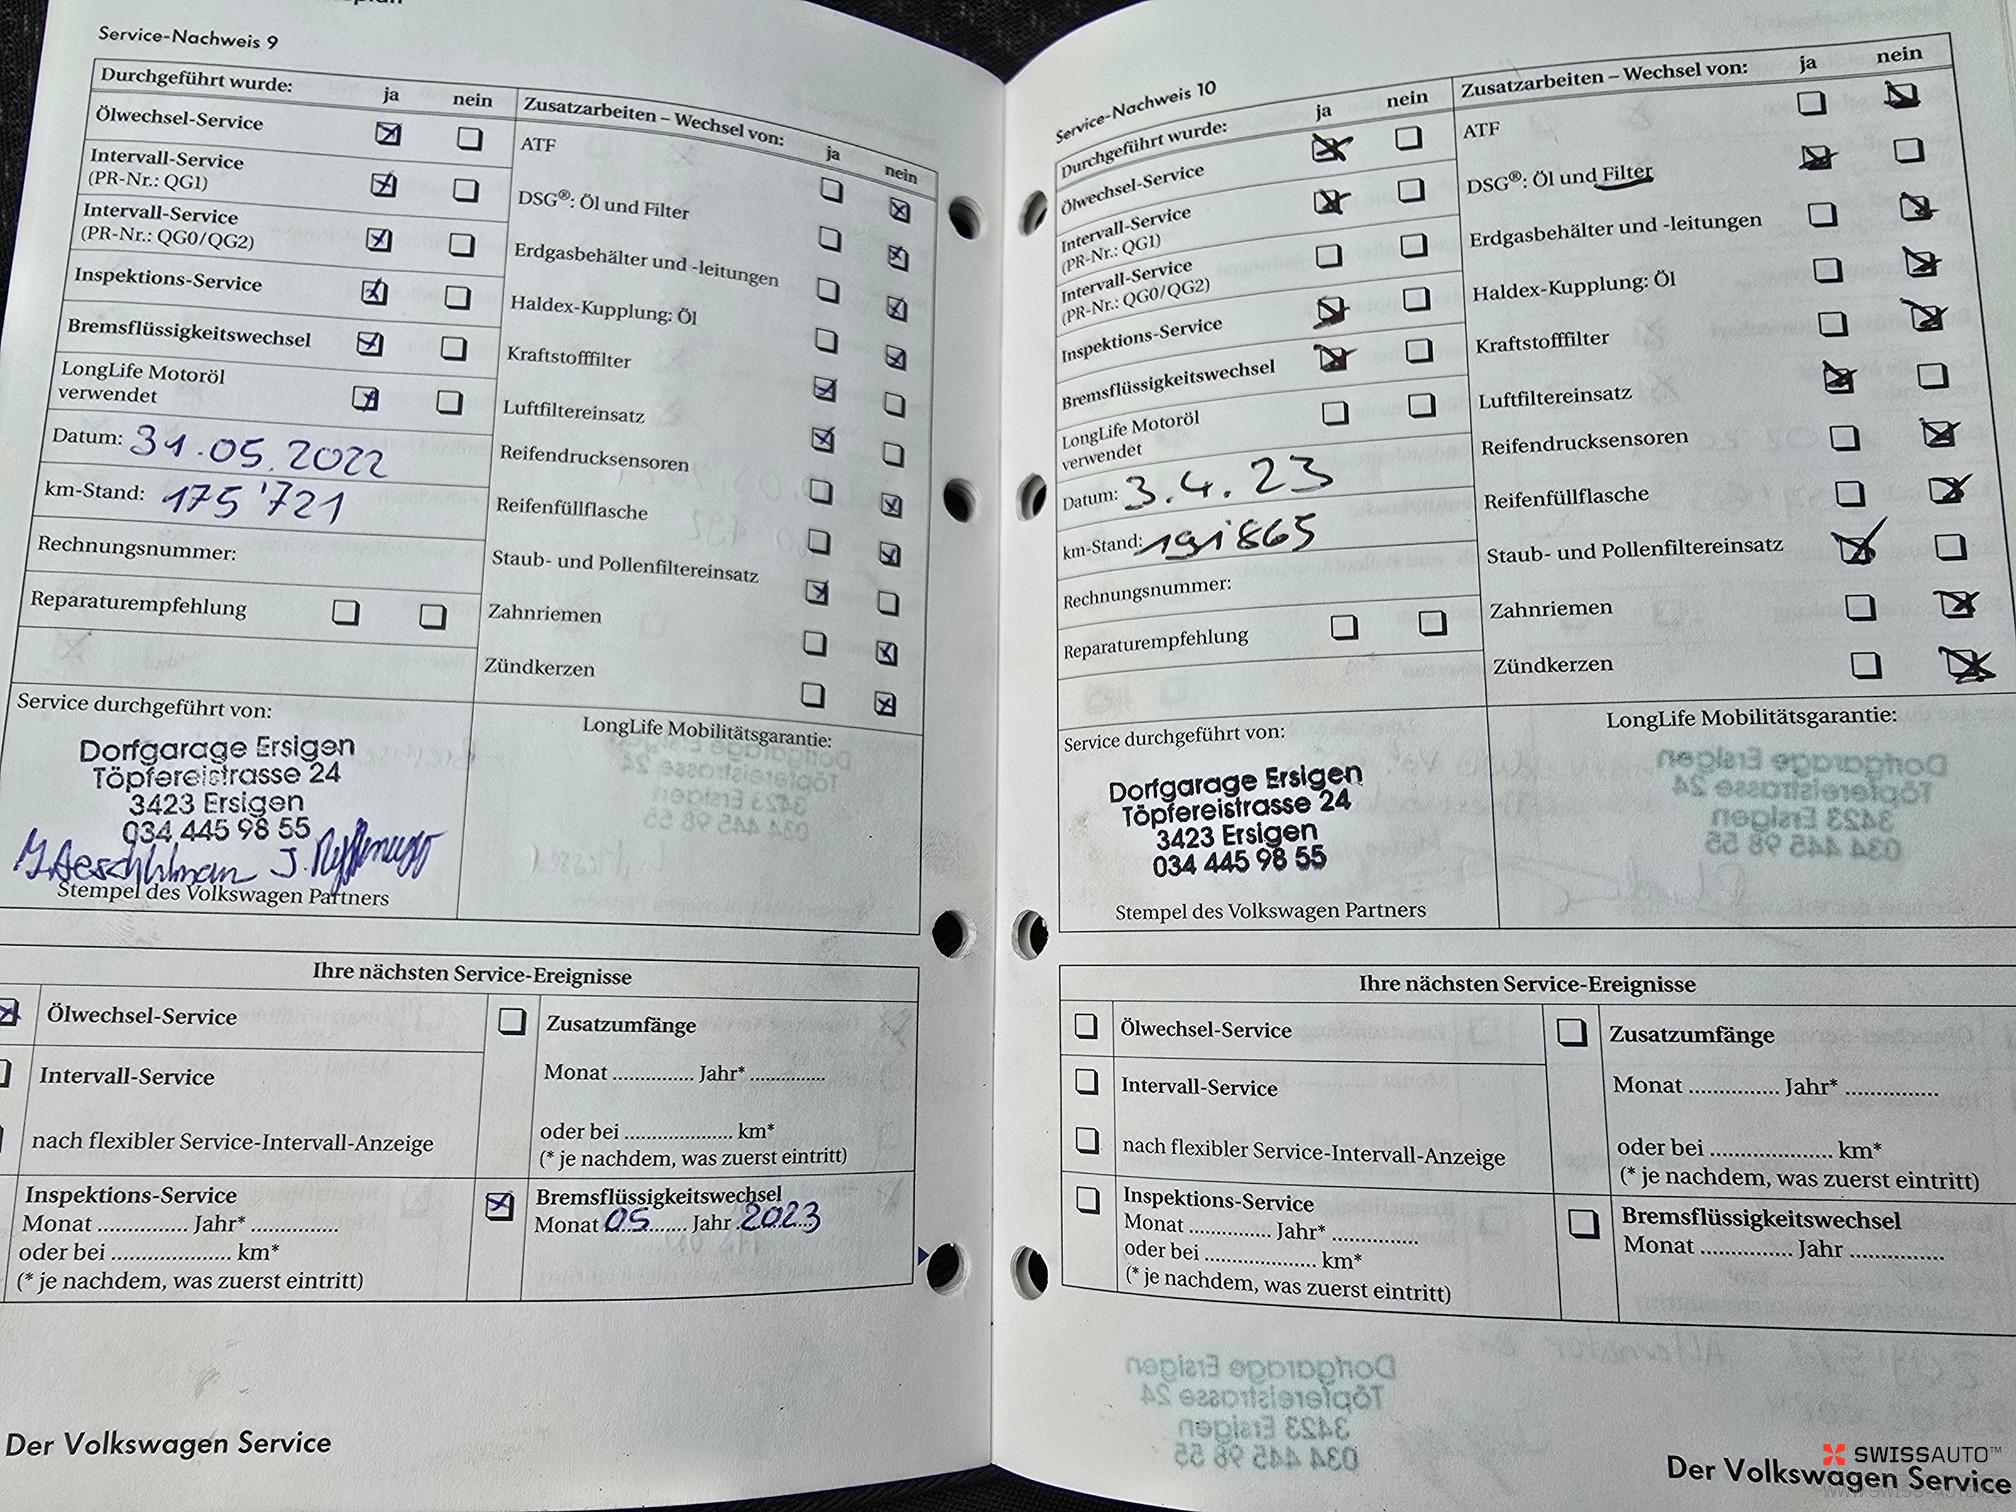 Service-Nachweis 9
Durchgeführt wurde: ja nein
Ölwechsel-Service
Intervall-Service
(PR-Nr.: QG1)
Intervall-Service
(PR-Nr.: QG0/QG2)
Inspektions-Service
Bremsflüssigkeitswechsel
LongLife Motoröl
verwendet
Datum: 31.05.2022
km-Stand: 175'721
Rechnungsnummer:
Reparaturempfehlung
Zusatzarbeiten – Wechsel von: ja nein
ATF
DSG®: Öl und Filter
Erdgasbehälter und -leitungen
Haldex-Kupplung: Öl
Kraftstofffilter
Luftfiltereinsatz
Reifendrucksensoren
Reifenfüllflasche
Staub- und Pollenfiltereinsatz
Zahnriemen
Zündkerzen
Service durchgeführt von:
Dorfgarage Ersigen
Töpfereistrasse 24
3423 Ersigen
034 445 98 55
Stempel des Volkswagen Partners
LongLife Mobilitätsgarantie:
Ihre nächsten Service-Ereignisse
Ölwechsel-Service
Intervall-Service
nach flexibler Service-Intervall-Anzeige
Inspektions-Service
Monat .............. Jahr* ..............
oder bei .................... km*
(* je nachdem, was zuerst eintritt)
Zusatzumfänge
Monat .............. Jahr* ..............
oder bei .................... km*
(* je nachdem, was zuerst eintritt)
Bremsflüssigkeitswechsel
Monat 05 Jahr 2023
Der Volkswagen Service
Service-Nachweis 10
Durchgeführt wurde: ja nein
Ölwechsel-Service
Intervall-Service
(PR-Nr.: QG1)
Intervall-Service
(PR-Nr.: QG0/QG2)
Inspektions-Service
Bremsflüssigkeitswechsel
LongLife Motoröl
verwendet
Datum: 3.4.23
km-Stand: 191865
Rechnungsnummer:
Reparaturempfehlung
Zusatzarbeiten – Wechsel von: ja nein
ATF
DSG®: Öl und Filter
Erdgasbehälter und -leitungen
Haldex-Kupplung: Öl
Kraftstofffilter
Luftfiltereinsatz
Reifendrucksensoren
Reifenfüllflasche
Staub- und Pollenfiltereinsatz
Zahnriemen
Zündkerzen
Service durchgeführt von:
Dorfgarage Ersigen
Töpfereistrasse 24
3423 Ersigen
034 445 98 55
Stempel des Volkswagen Partners
LongLife Mobilitätsgarantie:
Ihre nächsten Service-Ereignisse
Ölwechsel-Service
Intervall-Service
nach flexibler Service-Intervall-Anzeige
Inspektions-Service
Monat .............. Jahr* ..............
oder bei .................... km*
(* je nachdem, was zuerst eintritt)
Zusatzumfänge
Monat .............. Jahr* ..............
oder bei .................... km*
(* je nachdem, was zuerst eintritt)
Bremsflüssigkeitswechsel
Monat .............. Jahr ..............
SWISSAUTO™
Der Volkswagen Service